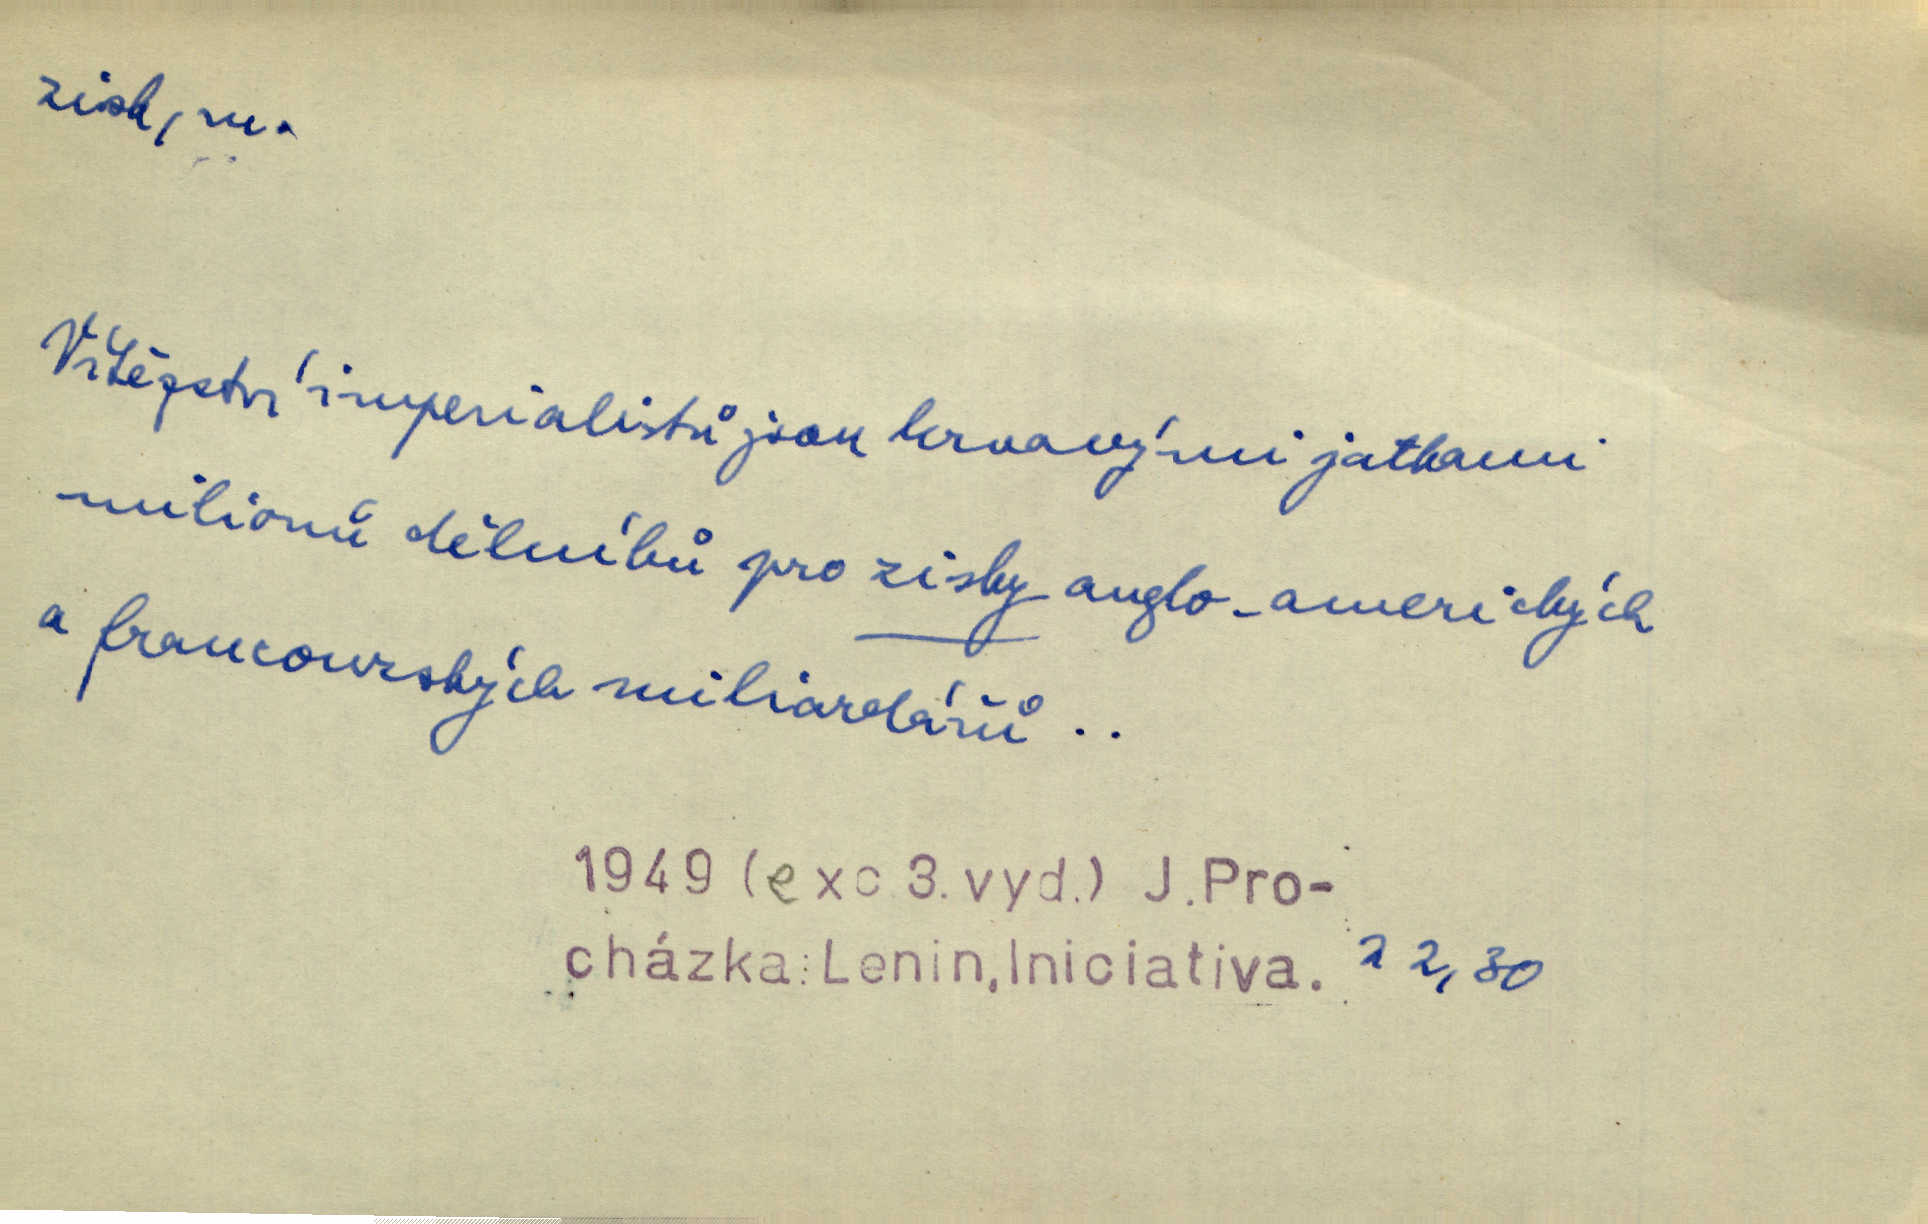 zisk, m.
Vítězství imperialistů jsou krvavými jatkami
milionů dělníků pro zisky anglo-amerických
a francouzských miliardářů ..
1949 (exc 3. vyd.) J. Pro-
cházka: Lenin, Iniciativa. 22, 30